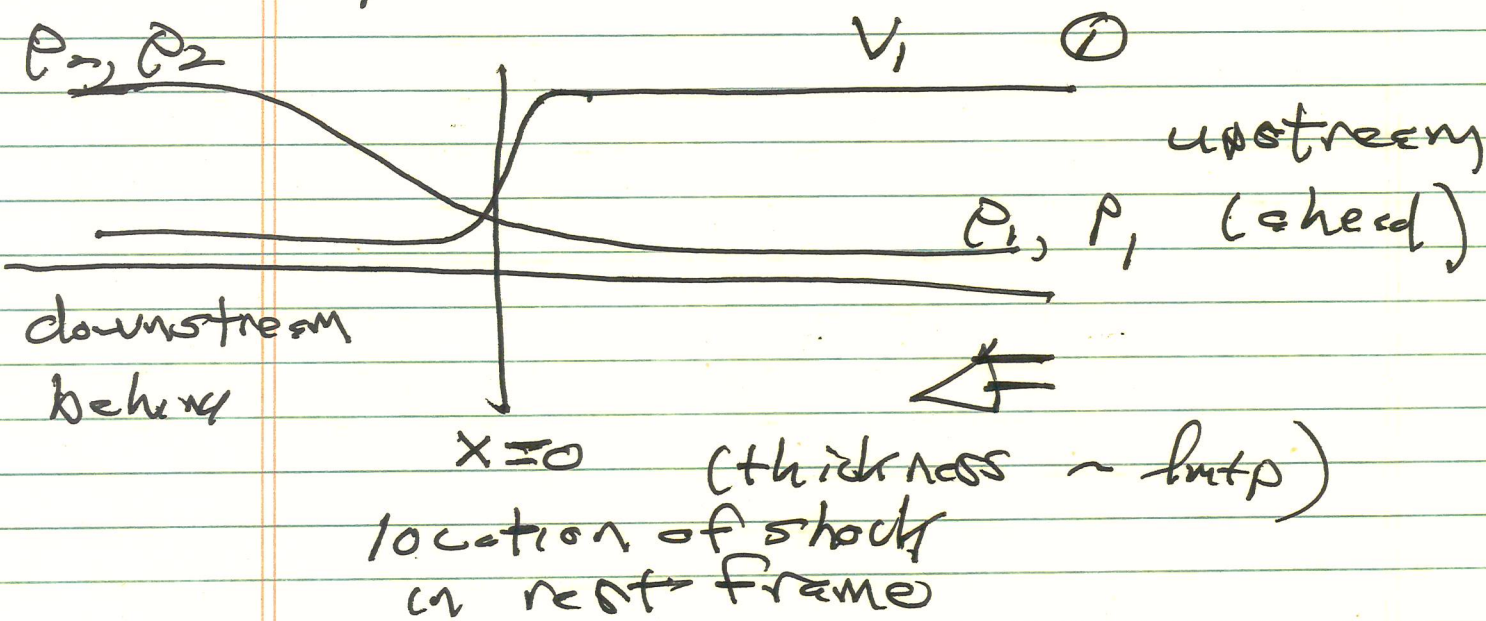 ρ₂, ρ₂ V₁ ①
upstream
ρ₁, P₁ (ahead)
downstream
behind
x=0 (thickness ~ lmfp)
location of shock
in rest frame